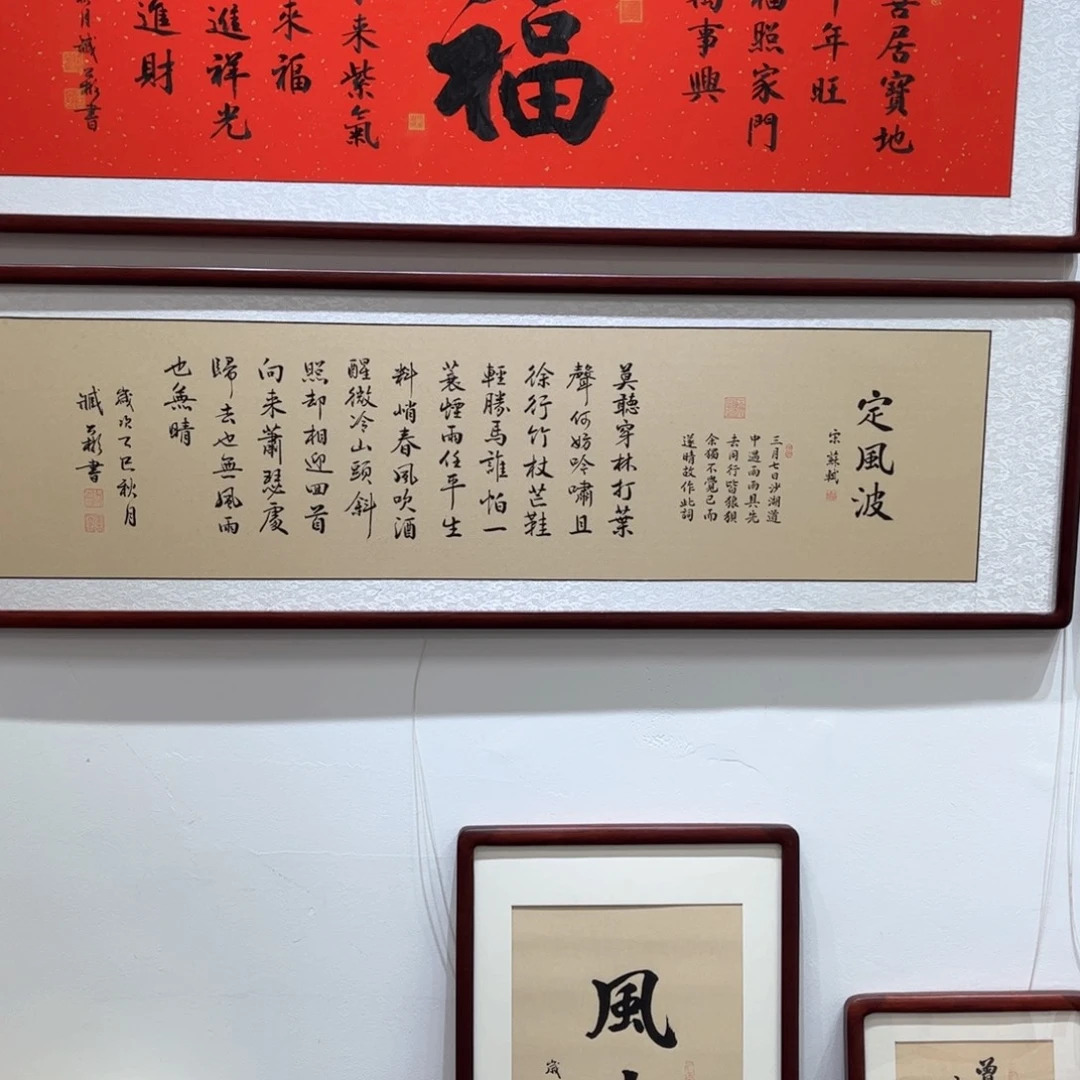 喜居寶地
年旺
福照家門
萬事興
福
來紫氣
來福
進祥光
進財
月臧彬書
定風波
宋蘇軾
三月七日沙湖道
中遇雨雨具先
去同行皆狼狽
余獨不覺已而
遂晴故作此詞
莫聽穿林打葉
聲何妨吟嘯且
徐行竹杖芒鞋
輕勝馬誰怕一
蓑煙雨任平生
料峭春風吹酒
醒微冷山頭斜
照却相迎回首
向来蕭瑟處
歸去也無風雨
也無晴
歲次乙巳秋月
臧彬書
風
歲
曾